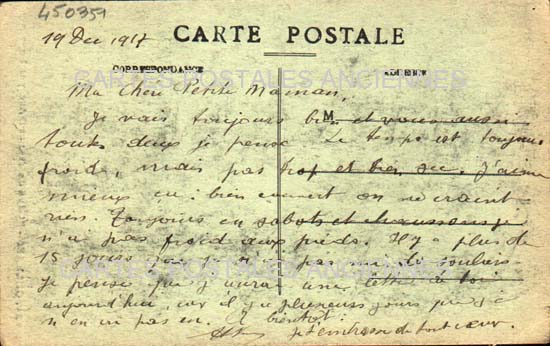 450351
19 Dec 1917
CARTE POSTALE
CORRESPONDANCE ADRESSE
CARTES POSTALES ANCIENNES
Ma Chère Petite Maman,
Je vais toujours bien et vous aussi
M.
toutes deux je pense Le temps est toujours
froid, mais pas trop et bien sec. J'aime
mieux ça: bien couvert on ne craint
rien. Toujours en sabots et chaussons je
n'ai pas froid aux pieds. Il y a plus de
15 jours que je n'ai pas mis de souliers
CARTES POSTALES ANCIENNES
je pense que j'aurai une lettre de toi
aujourd'hui, car il y a plusieurs jours que je
n'en ai pas eu. A bientôt
je t'embrasse de tout cœur.